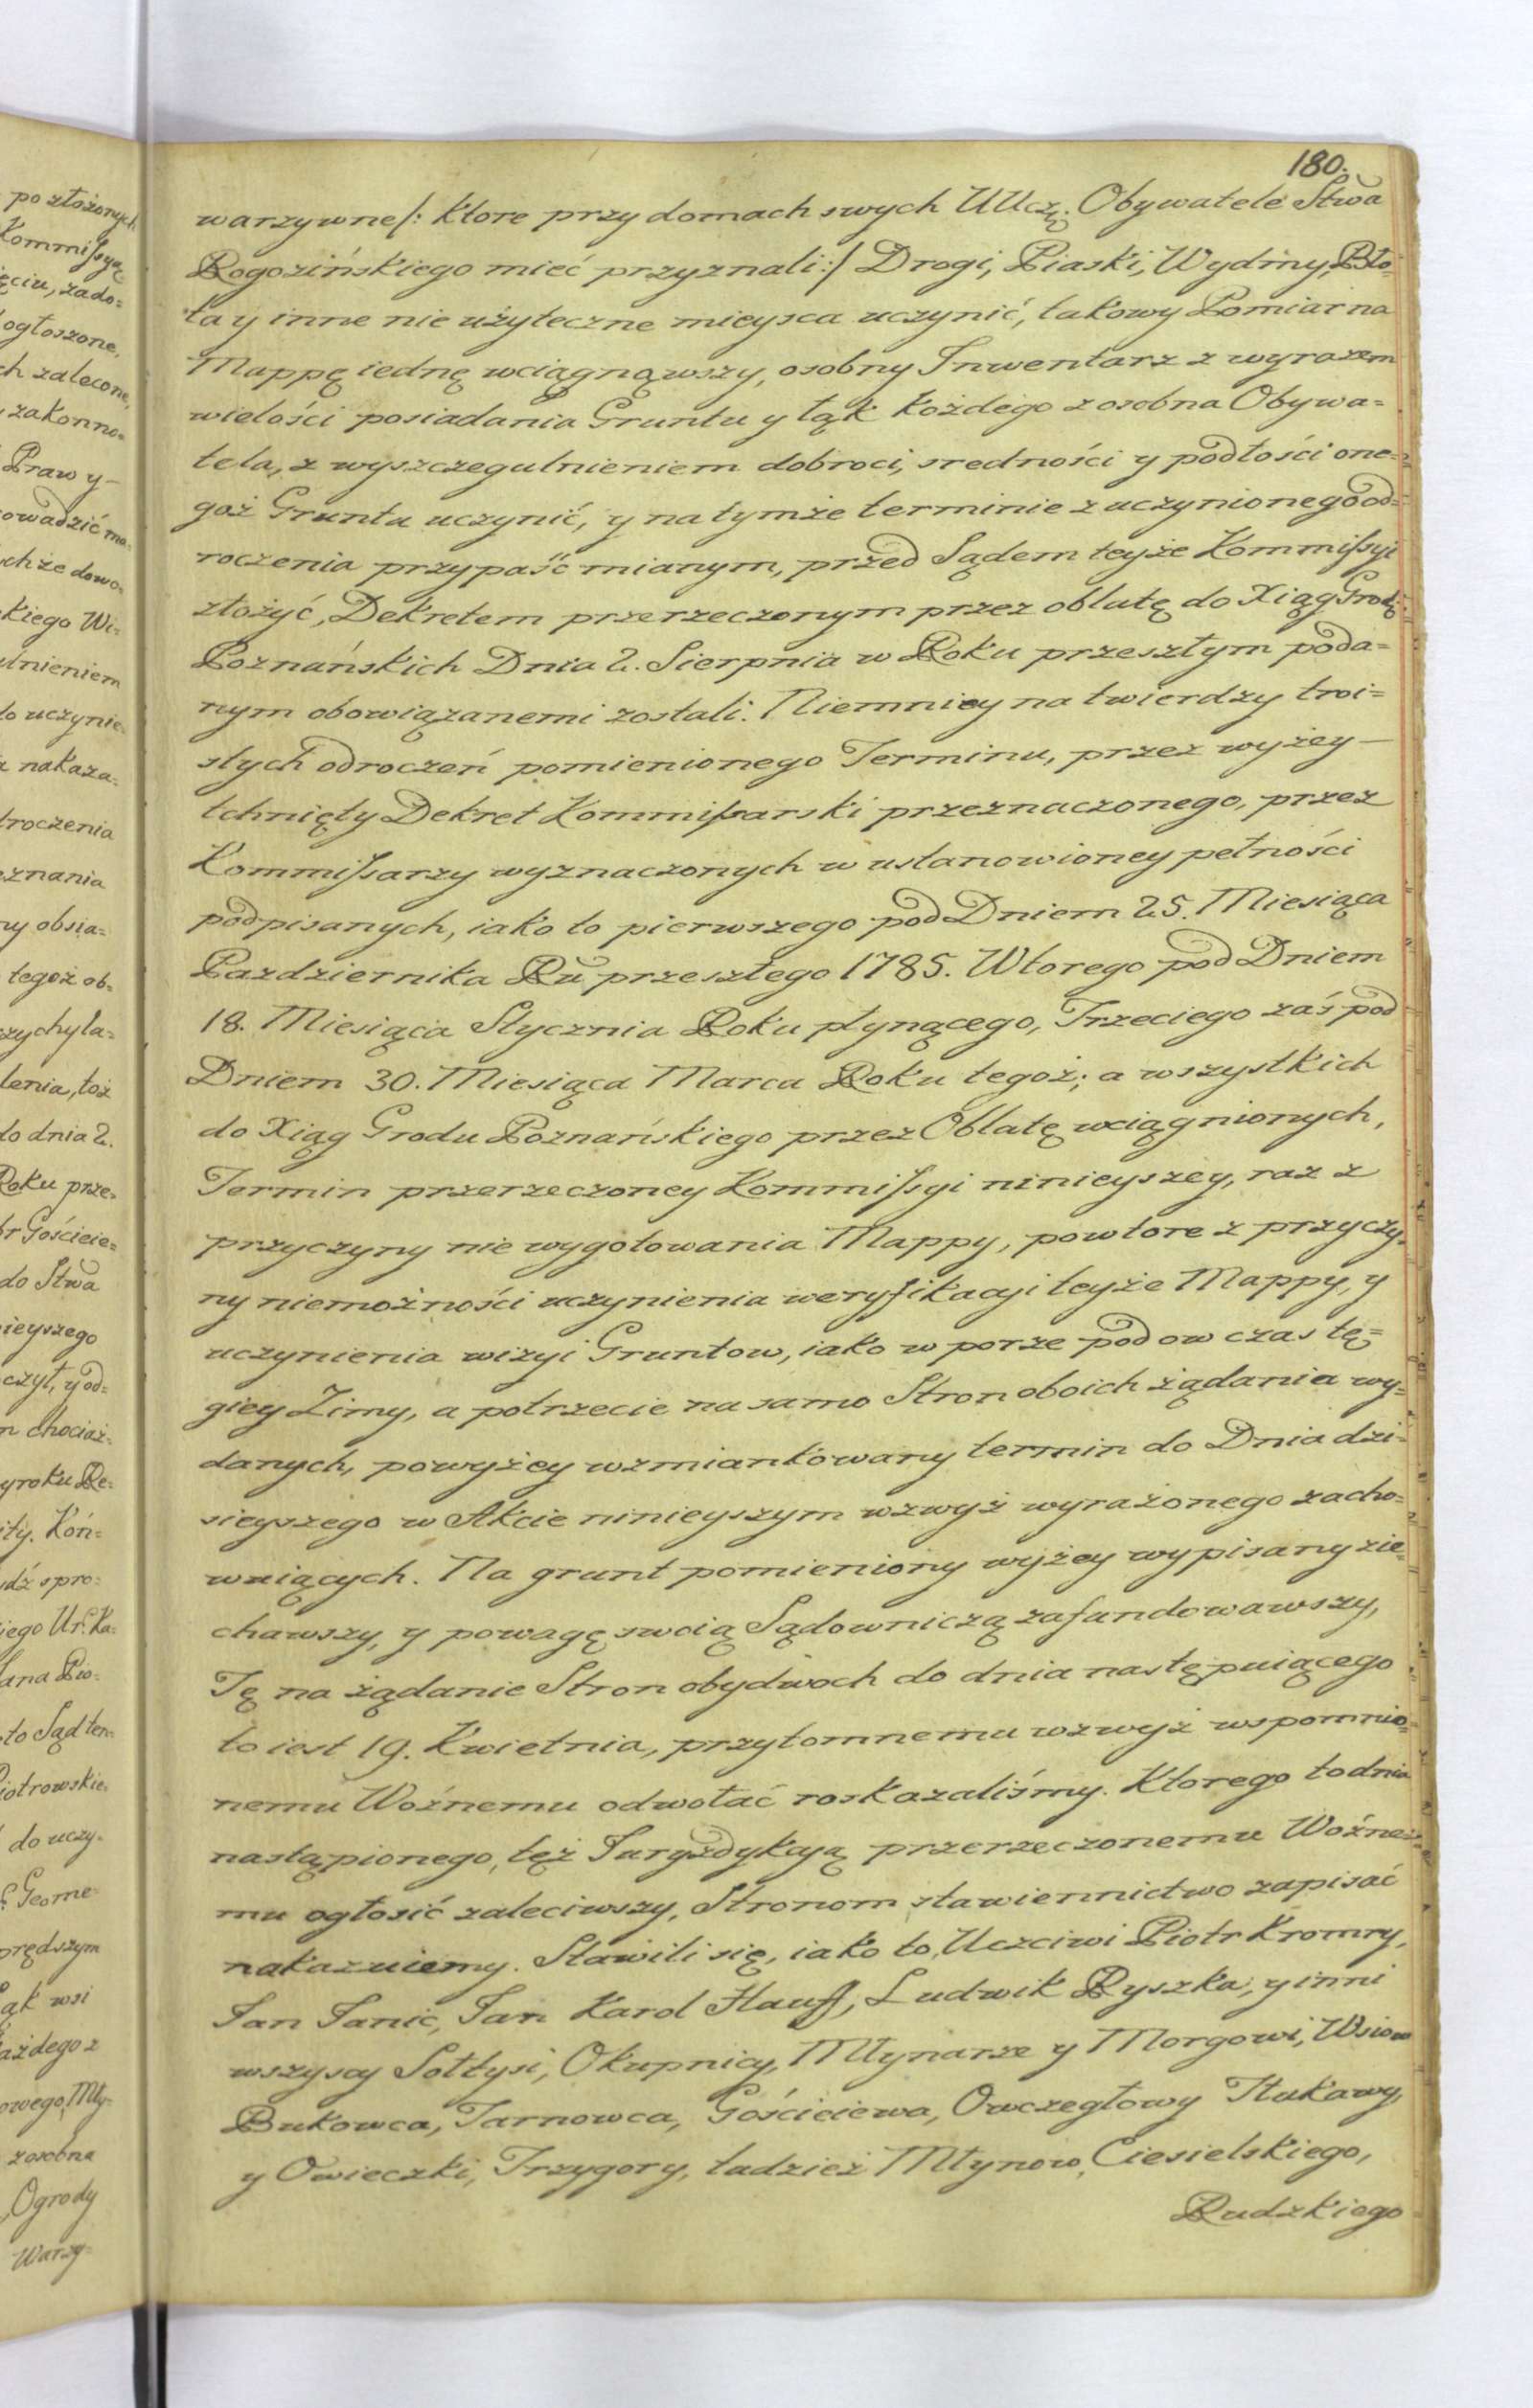 180.
warzywne/: ktore przy domach swych UUczę. Obywatele Stwa
Rogozińskiego mieć przyznali:/ Drogi, Piaski, Wydmy, Bło=
ta y inne nie użyteczne mieysca uczynić, takowy Pomiar na
Mappę iednę wciągnąwszy, osobny Inwentarz z wyrazem
wielości posiadania Gruntu y łąk każdego z osobna Obywa=
tela, z wyszczegulnieniem dobroci, sredności y podłości one=
goż Gruntu uczynić, y na tymże terminie z uczynionego od=
roczenia przypaść mianym, przed Sądem teyże Kommissyi
złożyć, Dekretem przerzeczonym przez oblatę do Xiąg Grodz.
Poznańskich Dnia 2. Sierpnia w Roku przeszłym poda=
nym obowiązanemi zostali. Niemniey na twierdzy troi=
stych odroczeń pomienionego Terminu, przez wyżey
tchnięty Dekret Kommissarski przeznaczonego, przez
Kommissarzy wyznaczonych w ustanowioney pełności
podpisanych, iako to pierwszego pod Dniem 25. Miesiąca
Pazdziernika Ru przeszłego 1785. Wtorego pod Dniem
18. Miesiąca Stycznia Roku płynącego, Trzeciego zaś pod
Dniem 30. Miesiąca Marca Roku tegoż; a wszystkich
do Xiąg Grodu Poznańskiego przez Oblatę wciągnionych,
Termin przerzeczoney Kommissyi ninieyszey, raz z
przyczyny nie wygotowania Mappy, powtore z przyczy=
ny niemożności uczynienia weryfikacyi teyże Mappy, y
uczynienia wizyi Gruntow, iako w porze pod ow czas tę=
giey Zimy, a potrzecie na samo Stron oboich żądania wy=
danych, powyżey wzmiankowany termin do Dnia dzi=
sieyszego w Akcie ninieyszym wzwyż wyrażonego zacho=
wuiących. Na grunt pomieniony wyżey wypisany zie=
chawszy, y powagę swoią Sądowniczą zafundowawszy,
Tę na żądanie Stron obydwoch do dnia następuiącego
to iest 19. Kwietnia, przytomnemu wzwyż wspomnio=
nemu Woźnemu odwołać roskazaliśmy. Ktorego to dnia
nastąpionego, też Juryzdykcyą przerzeczonemu Woźne=
mu ogłosić zaleciwszy, Stronom stawiennictwo zapisać
nakazuiemy. Stawili się, iako to, Uczciwi Piotr Kromry,
Jan Janic, Jan Karol Hauff, Ludwik Ryszka, y inni
wszyscy Sołtysi, Okupnicy, Młynarze y Morgowi, Wsiow
Bukowca, Tarnowca, Gościeiewa, Owczegłowy Tłukawy,
y Owieczki, Trzygory, tadzież Młynow, Ciesielskiego,
Rudzkiego
po złożonych
Kommissyą
ęciu, zado=
ogłoszone,
ch zalecone,
zakonno=
Praw y
owadzić ma=
ychże dowo=
kiego Wi=
ulnieniem
to uczynie=
nakaza=
troczenia
znania
ny obsia=
tegoż ob=
zychyla=
lenia, toż
do dnia 2.
Roku prze=
br Gościeie=
do Stwa
ieyszego
czył, y od=
m chociaż=
yroku Re=
ity. Kon=
idź spro=
iego Ur. Ka=
ana Pio=
to Sąd ten=
Piotrowskie=
do uczy=
Geome=
prędszym
ąk wsi
ażdego z
owego, Mły=
z osobna
Ogrody
Warzy=